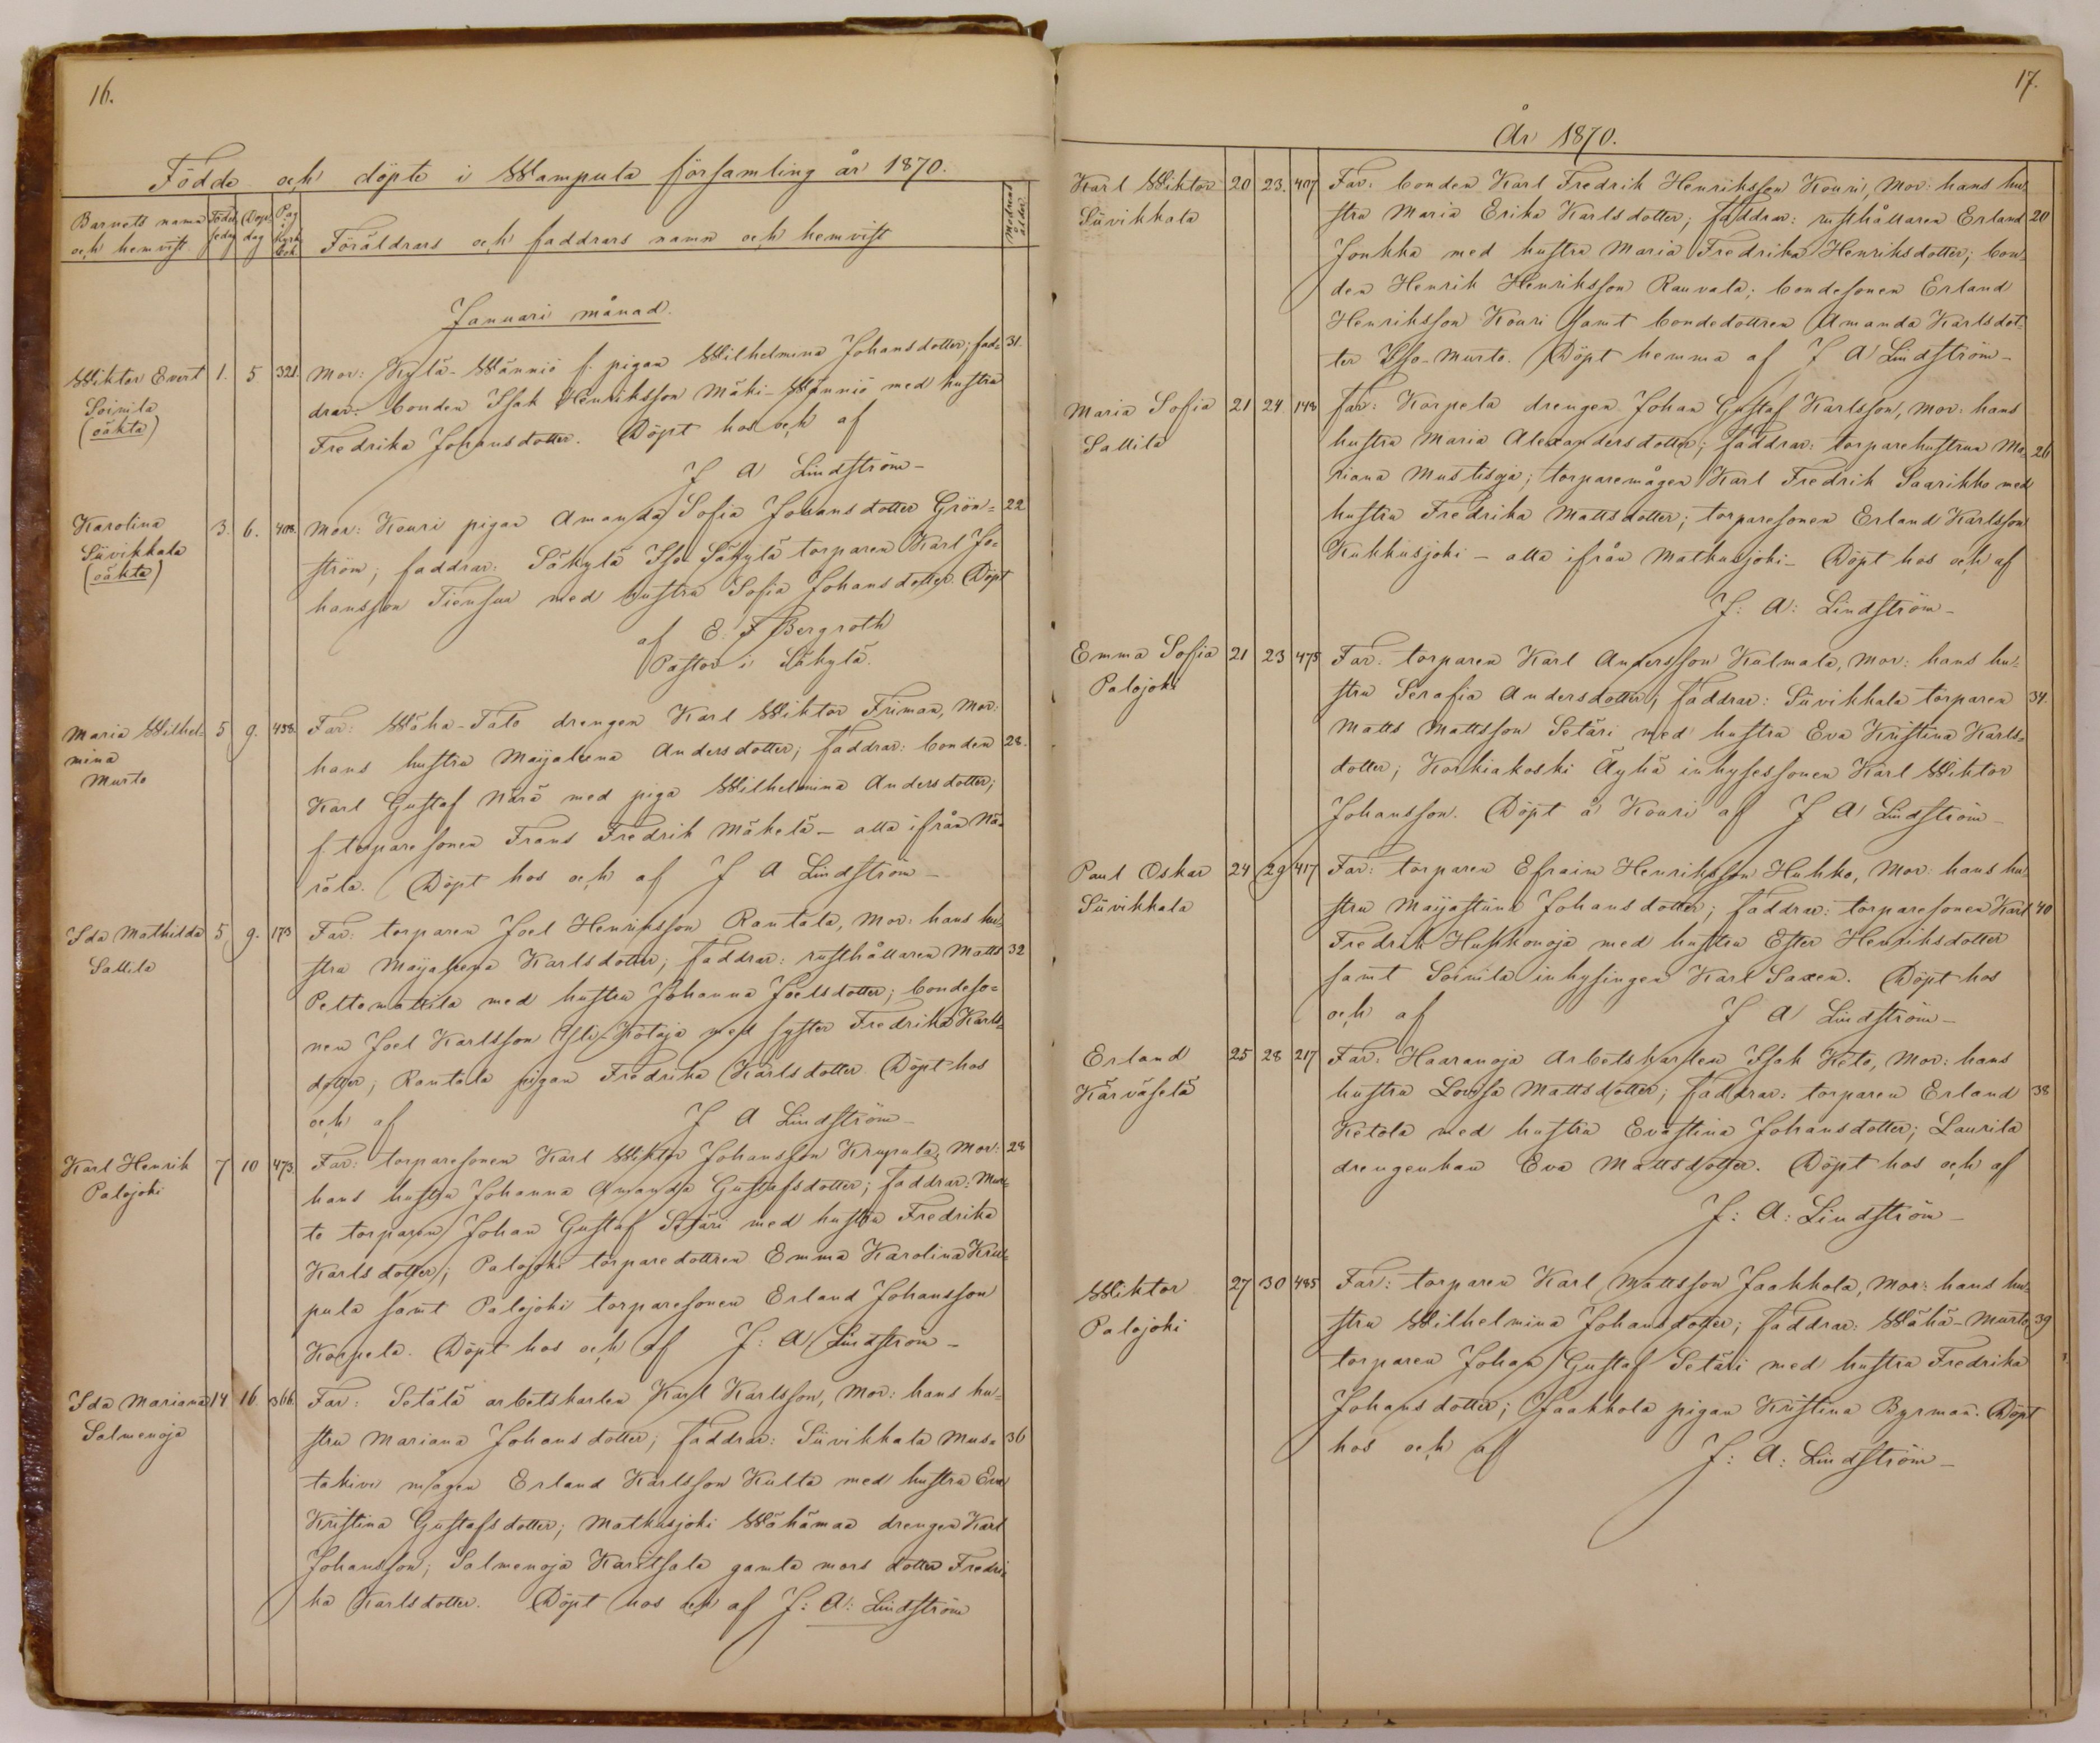 16.
Födde och döpte i Wampula församling år 1870.
Barnets namn och hemvist
Födelsedag
Dop dag
Pag i Kyrkbok
Föräldrars och faddrars namn och hemvist
Modrens ålder
Januari månad.
Wiktor Evert 1. 5 321. Mor: Kylä-Wänniö f. pigan Wilhelmina Johansdotter; fad= 31.
Soinila drar: bonden Isak Henriksson Mäki-Wänniö med hustru
(oäkta) Fredrika Johansdotter. Döpt hos och af
J A Lindström-
Karolina 3. 6. 408. Mor: Kouri pigan Amanda Sofia Johansdotter Grön= 22
Siivikkala ström; faddrar: Säkylä Iso Säkylä torparen Karl Jo=
(oäkta) hansson Tiensuu med hustru Sofia Johansdotter. Döpt
af E. F Bergroth
Pastor i Säkylä.
Maria Wilhel= 5 9. 438. Far: Wäha-Talo drengen Karl Wiktor Friman, Mor:
mina hans hustru Maijaleena Andersdotter; faddrar: bonden 28.
Murto Karl Gustaf Närä med piga Wilhelmina Andersdotter;
f. torparesonen Frans Fredrik Mäkelä - alla ifrån Nä=
rälä. Döpt hos och af J A Lindström-
Ida Mathilda 5 9. 173 Far: torparen Joel Henriksson Rantala, Mor: hans hu=
Sallila stru Maijaleena Karlsdotter; faddrar: rusthållaren Matts 32
Peltomattila med hustru Johanna Joelsdotter; bondeso=
nen Joel Karlsson Yli-Kötäjä med syster Fredrika Karls=
dotter; Rantala pigan Fredrika Karlsdotter Döpt hos
och af J A Lindström-
Karl Henrik 7 10 473. Far: torparesonen Karl Wiktor Johansson Krupula, Mor: 28
Palojoki hans hustru Johanna Amanda Gustafsdotter; faddrar: Mur=
to torparen Johan Gustaf Setäri med hustru Fredrika
Karlsdotter; Palojoki torparedottren Emma Karolina Kru=
pula samt Palojoki torparesonen Erland Johansson
Korpela. Döpt hos och af J: A Lindström-
Ida Mariana 14 16. 366. Far: Setälä arbetskarlen Karl Karlsson, Mor: hans hu=
Salmenoja stru Mariana Johansdotter; faddrar: Siivikkala Mus= 36
takivi mågen Erland Karlsson Kulta med hustru Eva
Kristina Gustafsdotter; Matkusjoki Wähämaa drengen Karl
Johansson; Salmenoja Karitsala gamla mors dotter Fredri=
ka Karlsdotter. Döpt hos och af J: A: Lindström
17.
År 1870.
Karl Wiktor 20 23. 407 Far: bonden Karl Fredrik Henriksson Kouri, Mor: hans hu=
Siivikkala stru Maria Erika Karlsdotter; faddrar: rusthållaren Erland 20
Jonkka med hustru Maria Fredrika Henriksdotter; bon=
den Henrik Henriksson Rauvala; bondesonen Erland
Henriksson Kouri samt bondedottren Amanda Karlsdot=
ter Iso-Murto. Döpt hemma af J A Lindström-
Maria Sofia 21 24 148 Far: Korpela drengen Johan Gustaf Karlsson, Mor: hans
Sallila hustru Maria Alexandersdotter; faddrar: torparehustrun Ma= 26
riana Mustioja; torparemågen Karl Fredrik Saarikko med
hustru Fredrika Mattsdotter; torparesonen Erland Karlsson
Kukkusjoki - alla ifrån Matkusjoki- Döpt hos och af
J: A: Lindström-
Emma Sofia 21 23 475 Far: torparen Karl Andersson Kulmala, Mor: hans hu=
Palojoki stru Serafia Andersdotter; faddrar: Siivikkala torparen 34.
Matts Mattsson Setäri med hustru Eva Kristina Karls=
dotter; Korkiakoski Äyhä inhysessonen Karl Wiktor
Johansson. Döpt å Kouri af J A Lindström-
Paul Oskar 24 29 417 Far: torparen Efraim Henriksson Huhko, Mor: hans hu=
Siivikkala stru Maijastiina Johansdotter; faddrar: torparesonen Karl 40
Fredrik Huhkonoja med hustru Ester Henriksdotter
samt Soinila inhysingen Karl Saxen. Döpt hos
och af J A Lindström-
Erland 25 28 217 Far: Haaranoja Arbetskarlen Isak Keto, Mor: hans
Kärväselä hustru Lovisa Mattsdotter; faddrar: torparen Erland 38
Ketola med hustru Evastina Johansdotter; Laurila
drengenkan Eva Mattsdotter. Döpt hos och af
J: A: Lindström-
Wiktor 27 30 485 Far: torparen Karl Mattsson Jaakkola, Mor: hans hu=
Palojoki stru Wilhelmina Johansdotter; faddrar: Wähä-Murto 39
torparen Johan Gustaf Setäri med hustru Fredrika
Johansdotter; Jaakkola pigan Kristina Byrman. Döpt
hos och af J: A: Lindström-